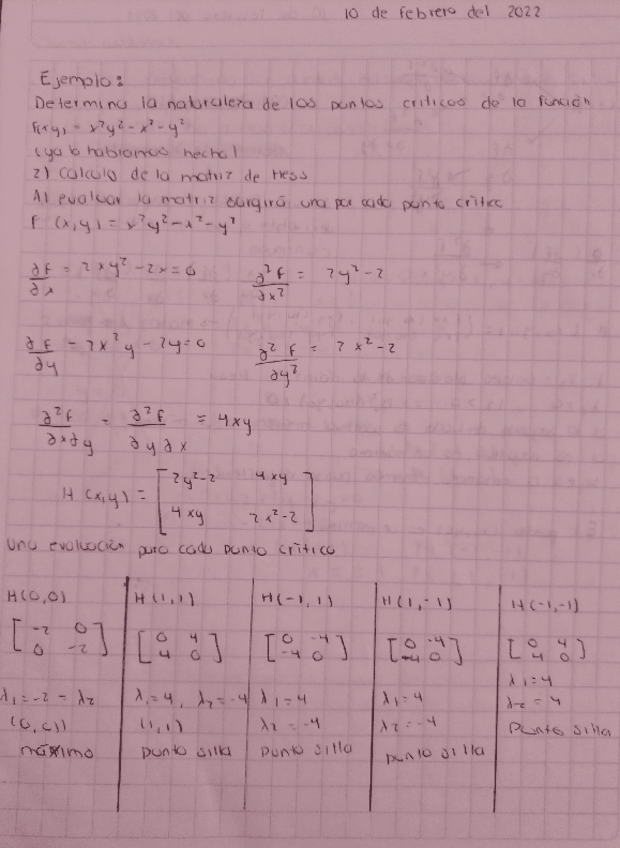 10 de febrero del 2022
Ejemplo:
Determina la naturaleza de los puntos criticos de la función
f(x,y) = x²y² - x² - y²
(ya lo habiamos hecho)
2) Calculo de la matriz de Hess
Al evaluar la matriz surgirá una por cada punto crítico
f (x,y) = x²y² - x² - y²
∂f/∂x = 2xy² - 2x = 0 ∂²f/∂x² = 2y² - 2
∂f/∂y = 2x²y - 2y = 0 ∂²f/∂y² = 2x² - 2
∂²f/∂x∂y = ∂²f/∂y∂x = 4xy
H(x,y) = [2y²-2 4xy
4xy 2x²-2]
Una evaluación para cada punto crítico
H(0,0) H(1,1) H(-1,1) H(1,-1) H(-1,-1)
[-2 0 [0 4 [0 -4 [0 -4 [0 4
0 -2] 4 0] -4 0] -4 0] 4 0]
λ₁=-2=λ₂ λ₁=4, λ₂=-4 λ₁=4 λ₁=4 λ₁=4
(0,0) (1,1) λ₂=-4 λ₂=-4 λ₂=4
máximo punto silla punto silla punto silla Punto silla